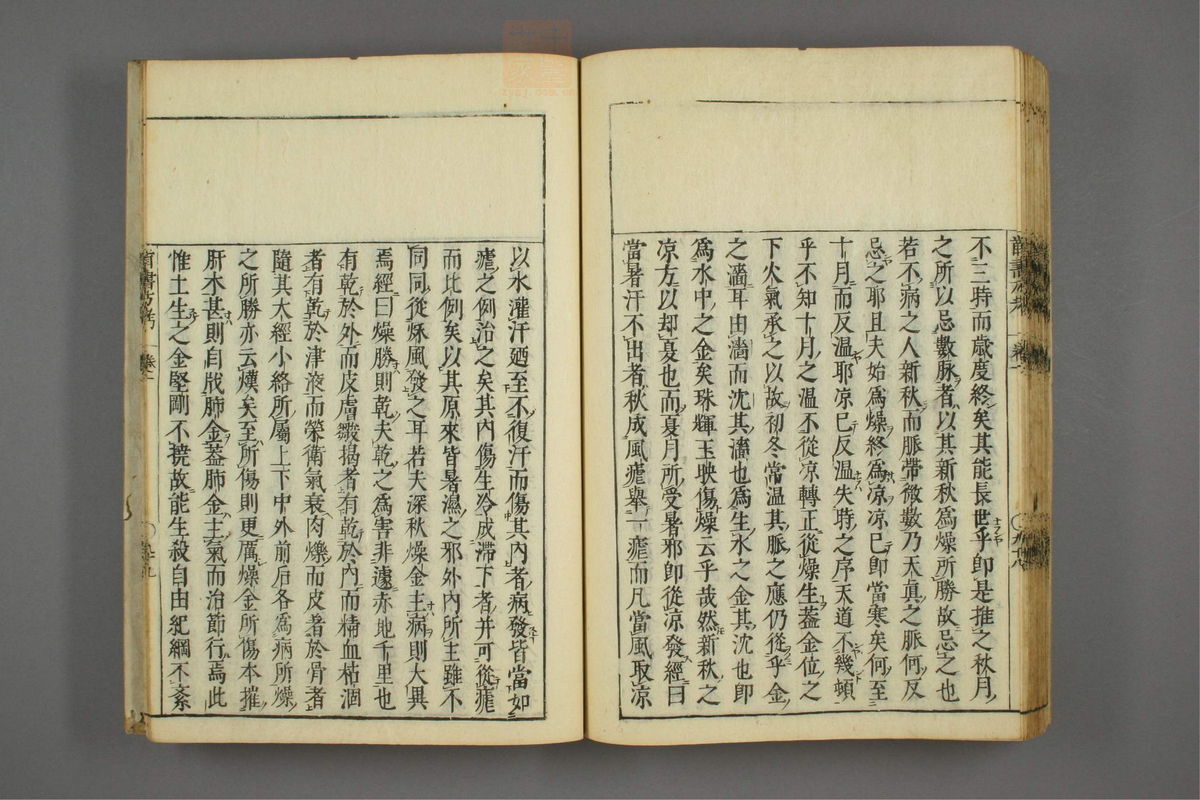 不三時而歲度終矣其能長世乎即是推之秋月
之所以忌數脉者以其新秋為燥所勝故忌之也
若不病之人新秋而脈帶微數乃天真之脈何反
忌之耶且夫始爲燥終為凉凉已即當寒矣何至
十月而反温耶凉已反温失時之序天道不幾頓
乎不知十月之温不從凉轉正從燥生蓋金位之
下火氣承之以故初冬常温其脈之應仍從乎金
之濇耳由濇而沈其濇也爲生水之金其沈也即
爲水中之金矣珠輝玉映傷燥云乎哉然新秋之
凉方以却暑也而夏月所受暑邪即從凉發經曰
當暑汗不出者秋成風瘧舉一瘧而凡當風取凉
以水灌汗廼至不復汗而傷其內者病發皆當如
瘧之例治之矣其內傷生冷成滯下者并可從瘧
而比例矣以其原來皆暑濕之邪外內所主雖不
同同從秌風發之耳若夫深秋燥金主病則大異
焉經曰燥勝則乾夫乾之爲害非遽赤地千里也
有乾於外而皮膚皺揭者有乾於內而精血枯涸
者有乾於津液而榮衛氣衰肉爍而皮著於骨者
隨其大經小絡所屬上下中外前后各爲病所燥
之所勝亦云熯矣至所傷則更厲燥金所傷本摧
肝木甚則自戕肺金蓋肺金主氣而治節行焉此
惟土生之金堅剛不撓故能生殺自由紀綱不紊